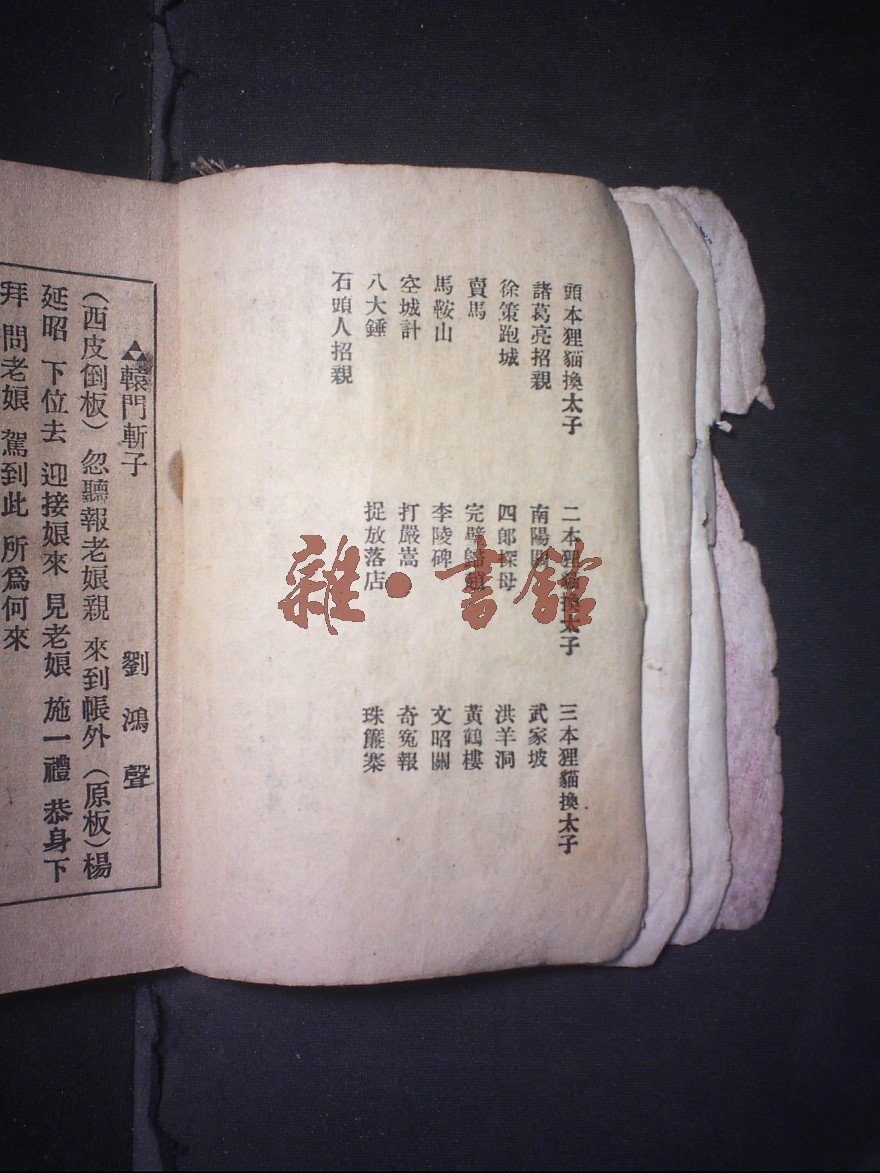 頭本狸貓換太子 二本狸貓換太子 三本狸貓換太子
諸葛亮招親 南陽關 武家坡
徐策跑城 四郎探母 洪羊洞
賣馬 完璧歸趙 黃鶴樓
馬鞍山 李陵碑 文昭關
空城計 打嚴嵩 奇冤報
八大錘 捉放落店 珠簾寨
石頭人招親
▲轅門斬子 劉鴻聲
(西皮倒板)忽聽報老娘親 來到帳外(原板)楊
延昭 下位去 迎接娘來 見老娘 施一禮 恭身下
拜 問老娘 駕到此 所爲何來
雜·書館